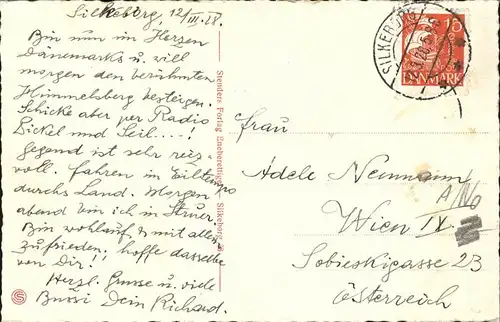 Silkeborg, 12/III.28.
Bin nun im Herzen
Dänemarks u. will
morgen den berühmten
Himmelsberg besteigen.
Schicke aber per Radio
Pickel und Seil...!
gegend ist sehr reiz-
voll. fahren in Eiltempo
durchs Land. Morgen
abend bin ich in Struer.
Bin wohlauf u. mit allem
zufrieden, hoffe dasselbe
von Dir!
Herzl. Grüsse u. viele
Bussi Dein Richard.
Stenders Forlag Eneberettiget Silkeborg
SILKEBORG
15
DANMARK
Frau
Adele Neumann
Wien IX.
Sobieskigasse 23
Österreich